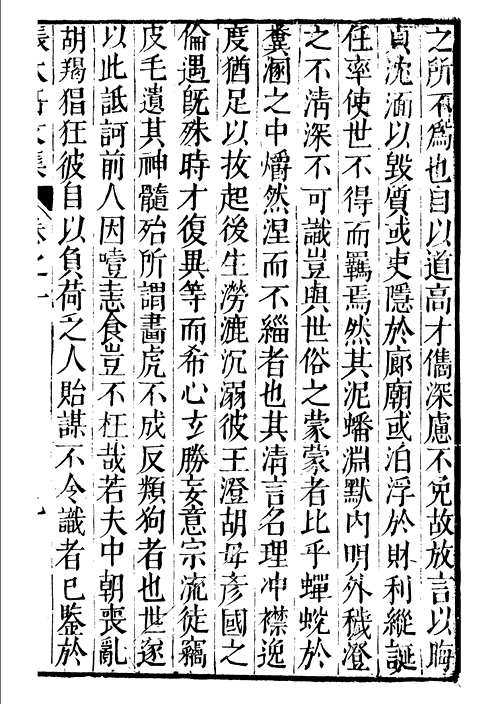 之所不爲也自以道高才儁深慮不免故放言以晦
貞沈湎以毀質或吏隱於廊廟或泊浮於財利縱誕
任率使世不得而羈焉然其泥蟠淵默内明外穢澄
之不清深不可識豈與世俗之蒙蒙者比乎蟬蛻於
糞溷之中皭然涅而不緇者也其清言名理冲襟逸
度猶足以扶起後生澇漉沉溺彼王澄胡毋彥國之
倫遇旣殊時才復異等而希心玄勝妄意宗流徒竊
皮毛遺其神髓殆所謂畫虎不成反類狗者也世遂
以此詆訶前人因噎恚食豈不枉哉若夫中朝喪亂
胡羯猖狂彼自以負荷乏人貽謀不令識者已鑒於
文集 卷之一 九